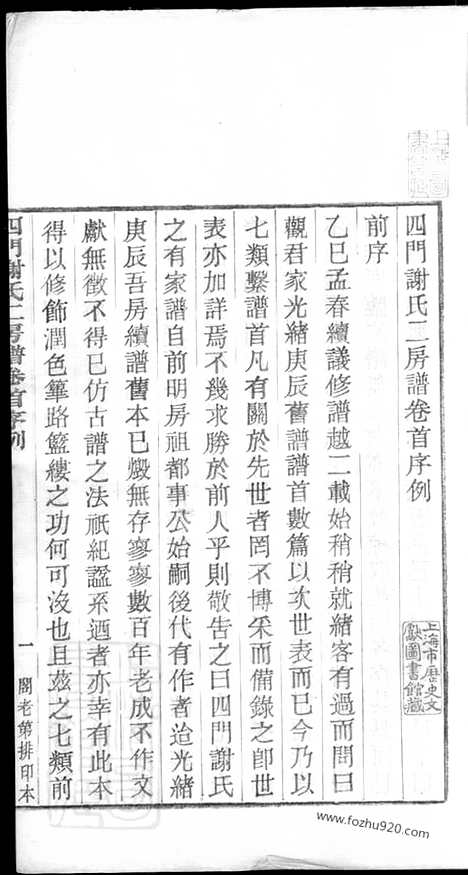 四門謝氏二房譜卷首序例
前序
乙巳孟春續議修譜越二載始稍稍就緒客有過而問曰
觀君家光緒庚辰舊譜譜首數篇以次世表而已今乃以
七類繫譜首凡有關於先世者罔不博采而備錄之卽世
表亦加詳焉不幾求勝於前人乎則敬告之曰四門謝氏
之有家譜自前明房祖都事公始嗣後代有作者迨光緒
庚辰吾房續譜舊本已燬無存寥寥數百年老成不作文
獻無徵不得已仿古譜之法祇紀謚系迺者亦幸有此本
得以修飾潤色篳路籃縷之功何可沒也且茲之七類前
四門謝氏二房譜卷首序例
一
閣老第排印本
上海市歷史文
獻圖書館藏
www.fozhu920.com